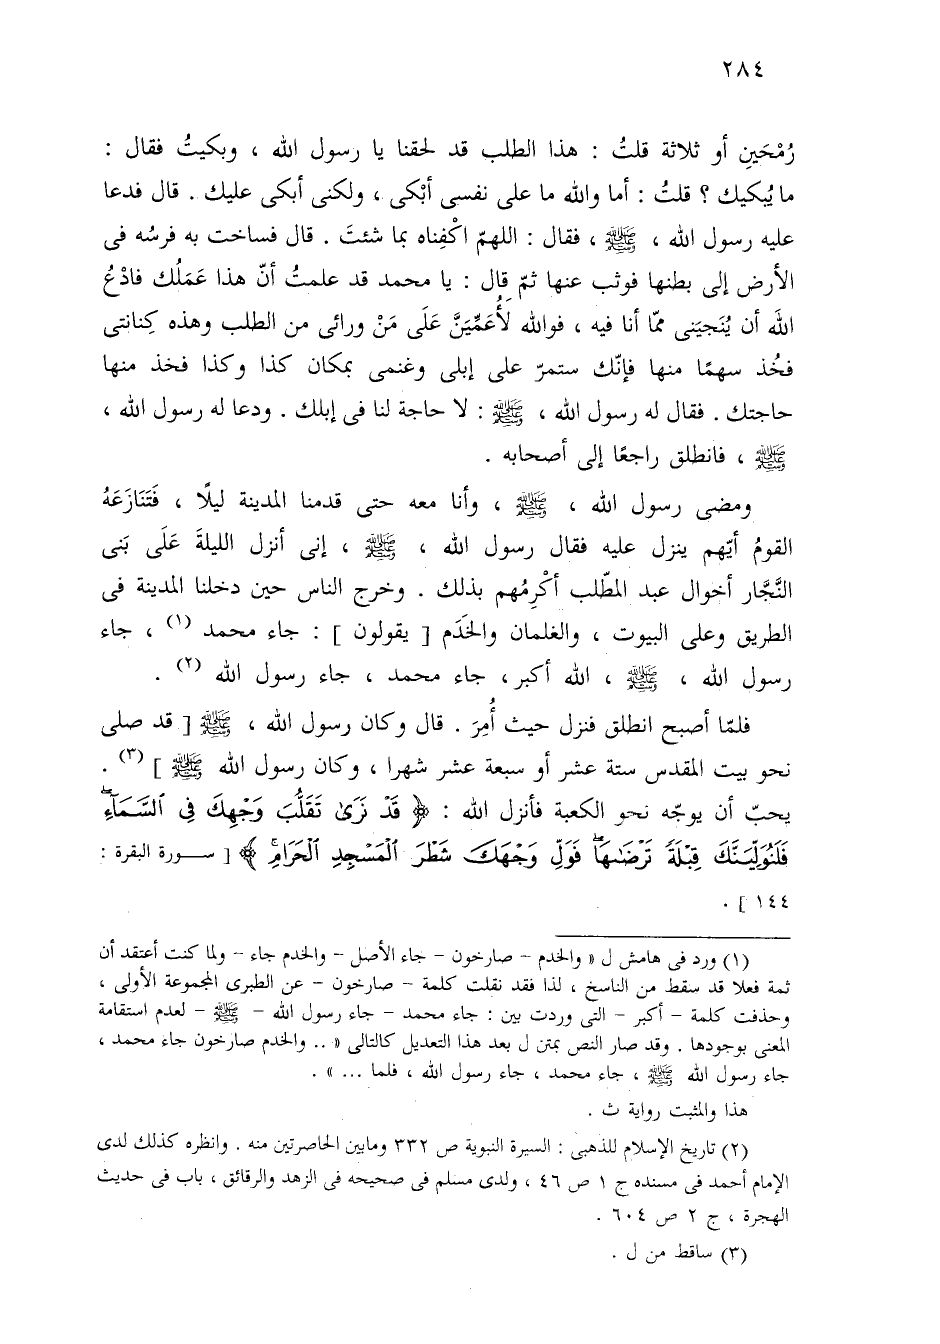 ٢٨٤
رُمْحَينِ أو ثلاثة قلتُ : هذا الطلب قد لحقنا يا رسول الله ، وبكيتُ فقال :
ما يُبكيك ؟ قلتُ : أما والله ما على نفسى أبْكى ، ولكنى أبكى عليك . قال فدعا
عليه رسول الله ، ﷺ ، فقال : اللهمّ اكْفِناه بما شئتَ . قال فساخت به فرسُه فى
الأرض إلى بطنها فوثب عنها ثمّ قال : يا محمد قد علمتُ أنّ هذا عَمَلُك فادْعُ
اللهَ أن يُنَجيَنى ممّا أنا فيه ، فوالله لَأُعَمِّيَنَّ عَلَى مَنْ ورائى من الطلب وهذه كِنانتى
فخُذ سهمًا منها فإنّك ستمرّ على إبلى وغنمى بمكان كذا وكذا فخذ منها
حاجتك . فقال له رسول الله ، ﷺ : لا حاجة لنا فى إبلك . ودعا له رسول الله ،
ﷺ ، فانطلق راجعًا إلى أصحابه .
ومضى رسول الله ، ﷺ ، وأنا معه حتى قدمنا المدينة ليلًا ، فَتَنَازَعَهُ
القومُ أيّهم ينزل عليه فقال رسول الله ، ﷺ ، إنى أنزل الليلةَ عَلَى بَنى
النَّجَّار أخوال عبد المطّلب أكْرِمُهم بذلك . وخرج الناس حين دخلنا المدينة فى
الطريق وعلى البيوت ، والغلمان والخَدَم [ يقولون ] : جاء محمد (١) ، جاء
رسول الله ، ﷺ ، الله أكبر، جاء محمد ، جاء رسول الله (٢) .
فلمّا أصبح انطلق فنزل حيث أُمِرَ . قال وكان رسول الله ، ﷺ [ قد صلى
نحو بيت المقدس ستة عشر أو سبعة عشر شهرا ، وكان رسول الله ﷺ ] (٣) .
يحبّ أن يوجّه نحو الكعبة فأنزل الله : ﴿ قَدْ نَرَىٰ تَقَلُّبَ وَجْهِكَ فِى ٱلسَّمَآءِۖ
فَلَنُوَلِّيَنَّكَ قِبْلَةً تَرْضَىٰهَاۚ فَوَلِّ وَجْهَكَ شَطْرَ ٱلْمَسْجِدِ ٱلْحَرَامِۚ ﴾ [ سورة البقرة :
١٤٤ ] .
(١) ورد فى هامش ل « والخدم - صارخون - جاء الأصل - والخدم جاء - ولما كنت أعتقد أن
ثمة فعلا قد سقط من الناسخ ، لذا فقد نقلت كلمة - صارخون - عن الطبرى المجموعة الأولى ،
وحذفت كلمة - أكبر - التى وردت بين : جاء محمد - جاء رسول الله - ﷺ - لعدم استقامة
المعنى بوجودها . وقد صار النص بمتن ل بعد هذا التعديل كالتالى « .. والخدم صارخون جاء محمد ،
جاء رسول الله ﷺ ، جاء محمد ، جاء رسول الله ، فلما ... » .
هذا والمثبت رواية ث .
(٢) تاريخ الإسلام للذهبى : السيرة النبوية ص ٣٣٢ ومابين الحاصرتين منه . وانظره كذلك لدى
الإمام أحمد فى مسنده ج ١ ص ٤٦ ، ولدى مسلم فى صحيحه فى الزهد والرقائق ، باب فى حديث
الهجرة ، ج ٢ ص ٦٠٤ .
(٣) ساقط من ل .